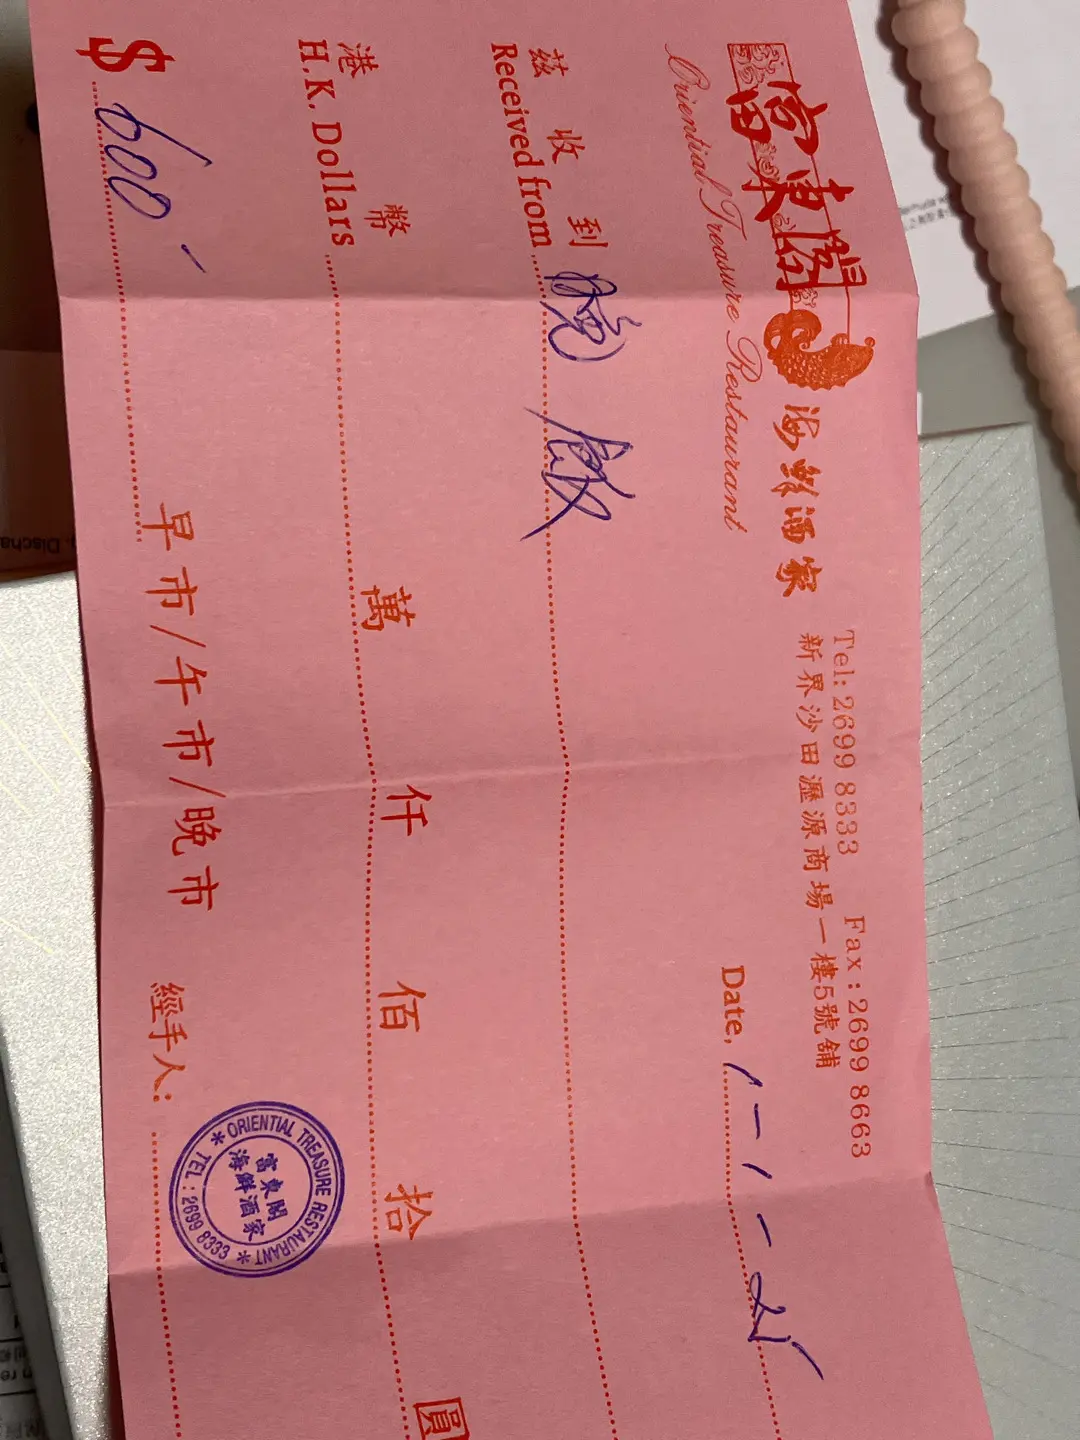 富東閣 海鮮酒家
Oriental Treasure Restaurant
Tel: 2699 8333 Fax: 2699 8663
新界沙田瀝源商場一樓5號舖
Date, 1-1-25
茲收到 晚飯
Received from
港幣 萬 仟 佰 拾 圓
H.K. Dollars
$ 600-
早市/午市/晚市
經手人:
ORIENTAL TREASURE RESTAURANT
富東閣
海鮮酒家
TEL : 2699 8333